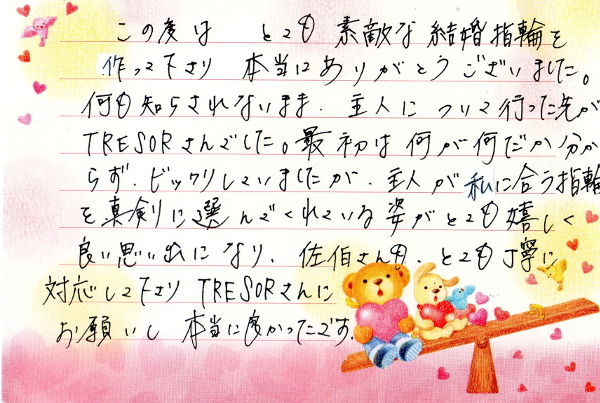 この度は とても 素敵な 結婚指輪を
作って下さり 本当にありがとうございました。
何も知らされないまま、主人に ついて行った先が
TRESORさんでした。最初は 何が何だか分か
らず、ビックリしていましたが、主人が 私に合う指輪
を真剣に選んでくれている姿がとても嬉しく
良い思い出になり、佐伯さんも、とても丁寧に
対応して下さり TRESORさんに
お願いし 本当に良かったです。